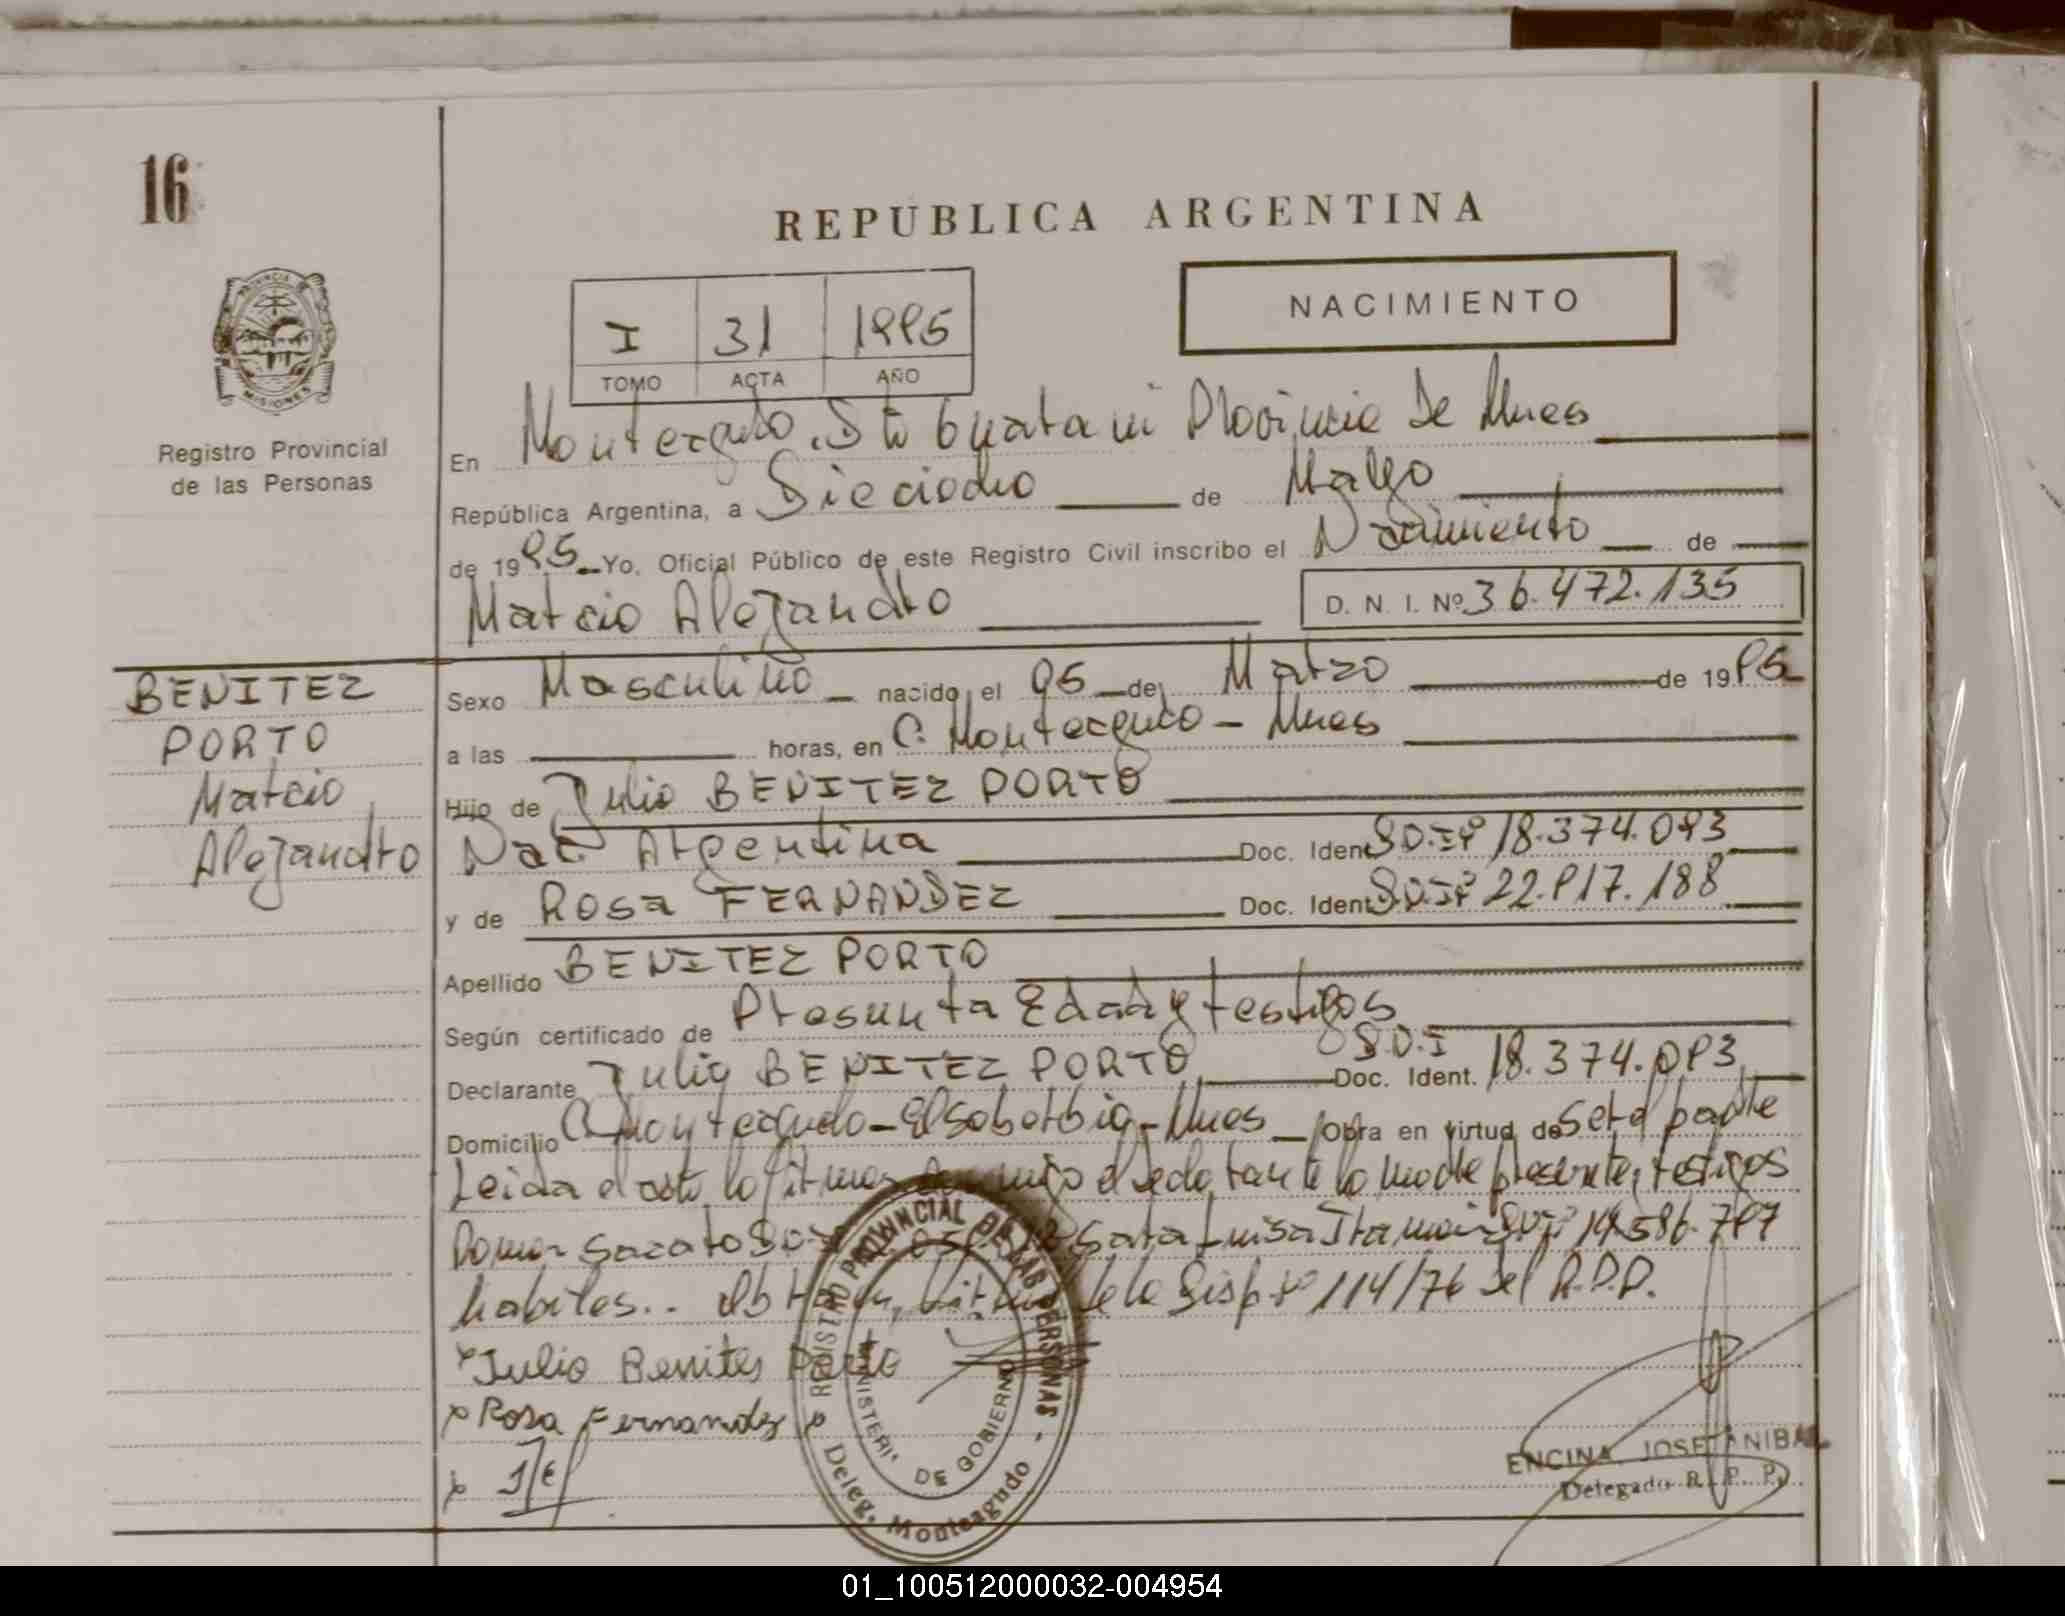 16
REPUBLICA ARGENTINA
NACIMIENTO
I 31 1995
TOMO ACTA AÑO
Registro Provincial
de las Personas
PROVINCIA DE
MISIONES
En Monteagudo, Dto Guarani Provincia De Mnes
República Argentina, a Dieciocho de Mayo
de 1995 Yo, Oficial Público de este Registro Civil inscribo el Nacimiento de
Marcio Alejandro D. N. I. Nº 36.472.135
BENITEZ
PORTO
Marcio
Alejandro
Sexo Masculino nacido el 05 de Marzo de 1995
a las horas, en C. Monteagudo - Mnes
Hijo de Julio BENITEZ PORTO
Nac. Argentina Doc. Ident. 18.374.093
y de Rosa FERNANDEZ Doc. Ident. 22.917.188
Apellido BENITEZ PORTO
Según certificado de Presunta Edad y testigos
Declarante Julio BENITEZ PORTO Doc. Ident. 18.374.093
Domicilio C. Monteagudo - El Soberbio - Mnes Obra en virtud de ser el padre
Leida el acta la firman conmigo el declarante la madre presente, testigos
Sara Luisa 14.586.797
habiles.. de la Disp. Nº 114/76 del R.P.P.
Julio Benites Porto
Rosa Fernandez
REGISTRO PROVINCIAL DE LAS PERSONAS -
MINISTERIO DE GOBIERNO
Deleg. Monteagudo
ENCINA JOSE ANIBAL
Delegado R. P. P.
01_100512000032-004954